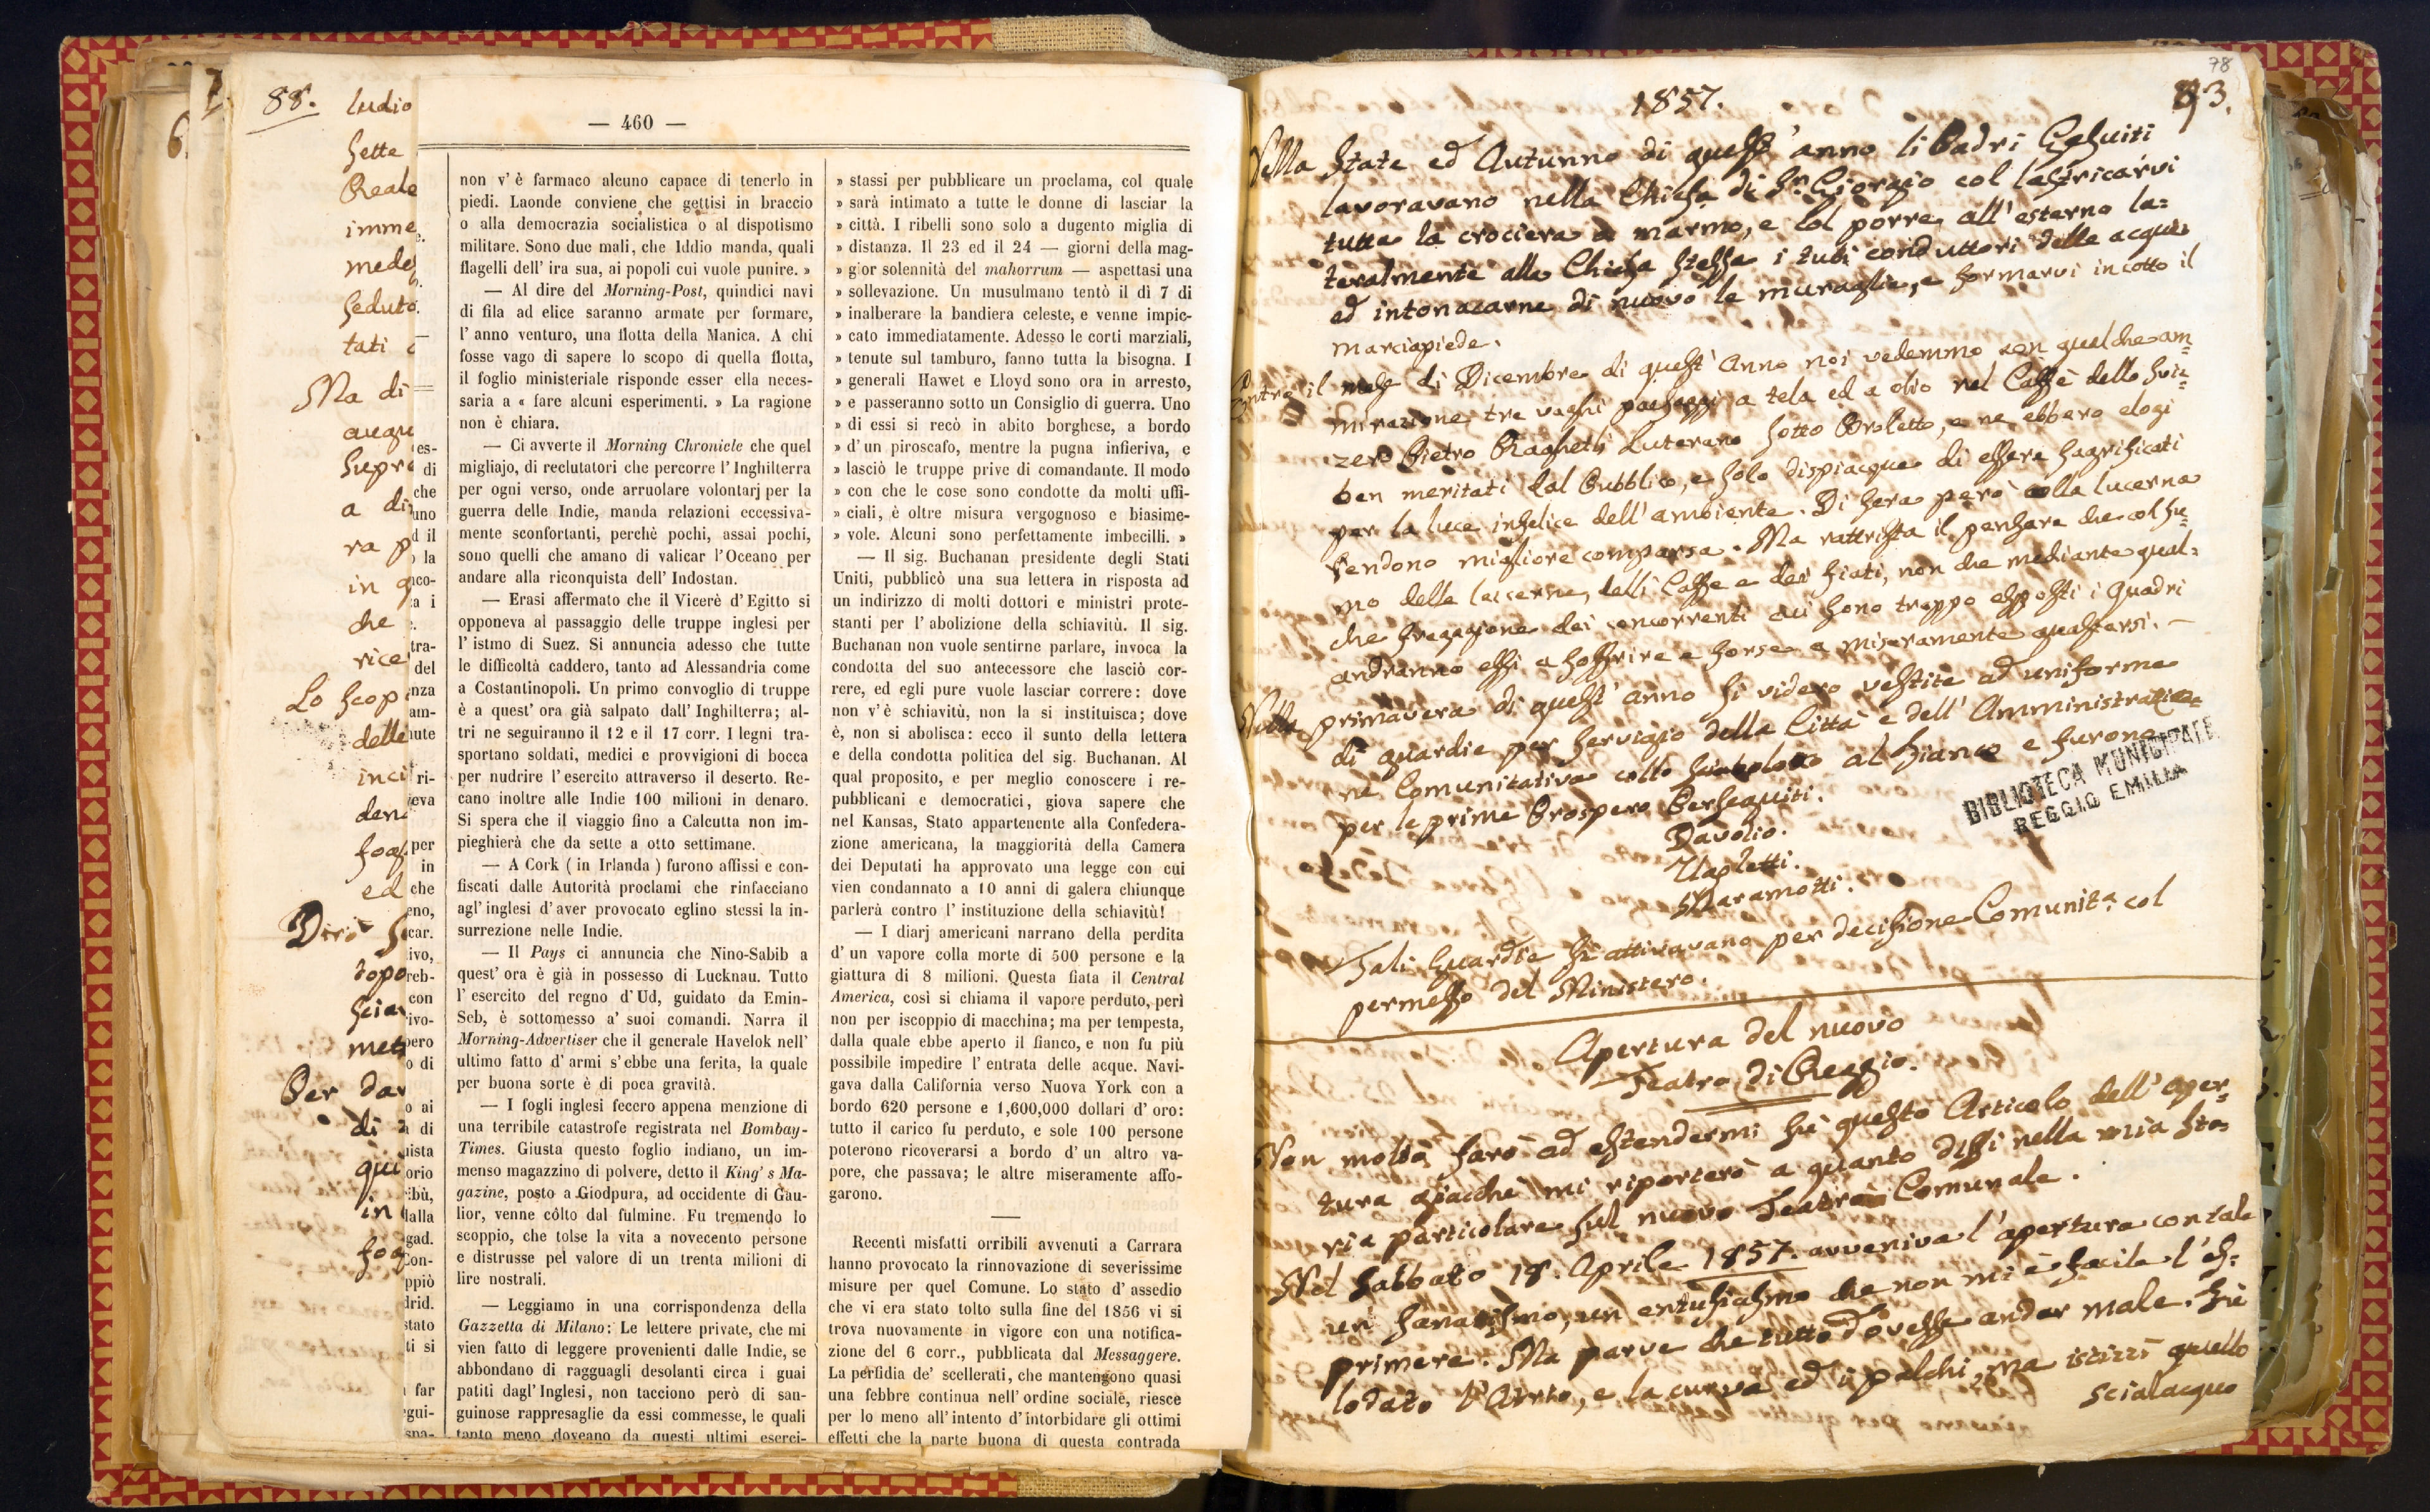 88.
ludio
sette
Reale
imme
mede
sedute
tati
Ma di
augu
supre
a di
ra p
in q
che
rice
Lo scop
delle
inci
den
fog
ed
Dirò
dopo
scia
met
Per dar
di
qui
in
fog
— 460 —
non v' è farmaco alcuno capace di tenerlo in
piedi. Laonde conviene che gettisi in braccio
o alla democrazia socialistica o al dispotismo
militare. Sono due mali, che Iddio manda, quali
flagelli dell' ira sua, ai popoli cui vuole punire. »
— Al dire del Morning-Post, quindici navi
di fila ad elice saranno armate per formare,
l' anno venturo, una flotta della Manica. A chi
fosse vago di sapere lo scopo di quella flotta,
il foglio ministeriale risponde esser ella neces-
saria a « fare alcuni esperimenti. » La ragione
non è chiara.
— Ci avverte il Morning Chronicle che quel
migliajo, di reclutatori che percorre l' Inghilterra
per ogni verso, onde arruolare volontarj per la
guerra delle Indie, manda relazioni eccessiva-
mente sconfortanti, perchè pochi, assai pochi,
sono quelli che amano di valicar l'Oceano per
andare alla riconquista dell' Indostan.
— Erasi affermato che il Vicerè d' Egitto si
opponeva al passaggio delle truppe inglesi per
l' istmo di Suez. Si annuncia adesso che tutte
le difficoltà caddero, tanto ad Alessandria come
a Costantinopoli. Un primo convoglio di truppe
è a quest' ora già salpato dall' Inghilterra; al-
tri ne seguiranno il 12 e il 17 corr. I legni tra-
sportano soldati, medici e provvigioni di bocca
per nudrire l' esercito attraverso il deserto. Re-
cano inoltre alle Indie 100 milioni in denaro.
Si spera che il viaggio fino a Calcutta non im-
pieghierà che da sette a otto settimane.
— A Cork ( in Irlanda ) furono affissi e con-
fiscati dalle Autorità proclami che rinfacciano
agl' inglesi d' aver provocato eglino stessi la in-
surrezione nelle Indie.
— Il Pays ci annuncia che Nino-Sabib a
quest' ora è già in possesso di Lucknau. Tutto
l' esercito del regno d' Ud, guidato da Emin-
Seb, è sottomesso a' suoi comandi. Narra il
Morning-Advertiser che il generale Havelok nell'
ultimo fatto d' armi s' ebbe una ferita, la quale
per buona sorte è di poca gravità.
— I fogli inglesi fecero appena menzione di
una terribile catastrofe registrata nel Bombay-
Times. Giusta questo foglio indiano, un im-
menso magazzino di polvere, detto il King' s Ma-
gazine, posto a Giodpura, ad occidente di Gau-
lior, venne côlto dal fulmine. Fu tremendo lo
scoppio, che tolse la vita a novecento persone
e distrusse pel valore di un trenta milioni di
lire nostrali.
— Leggiamo in una corrispondenza della
Gazzetta di Milano: Le lettere private, che mi
vien fatto di leggere provenienti dalle Indie, se
abbondano di ragguagli desolanti circa i guai
patiti dagl' Inglesi, non tacciono però di san-
guinose rappresaglie da essi commesse, le quali
tanto meno doveano da questi ultimi eserci-
» stassi per pubblicare un proclama, col quale
» sarà intimato a tutte le donne di lasciar la
» città. I ribelli sono solo a dugento miglia di
» distanza. Il 23 ed il 24 — giorni della mag-
» gior solennità del mahorrum — aspettasi una
» sollevazione. Un musulmano tentò il dì 7 di
» inalberare la bandiera celeste, e venne impic-
» cato immediatamente. Adesso le corti marziali,
» tenute sul tamburo, fanno tutta la bisogna. I
» generali Hawet e Lloyd sono ora in arresto,
» e passeranno sotto un Consiglio di guerra. Uno
» di essi si recò in abito borghese, a bordo
» d' un piroscafo, mentre la pugna infieriva, e
» lasciò le truppe prive di comandante. Il modo
» con che le cose sono condotte da molti uffi-
» ciali, è oltre misura vergognoso e biasime-
» vole. Alcuni sono perfettamente imbecilli. »
— Il sig. Buchanan presidente degli Stati
Uniti, pubblicò una sua lettera in risposta ad
un indirizzo di molti dottori e ministri prote-
stanti per l' abolizione della schiavitù. Il sig.
Buchanan non vuole sentirne parlare, invoca la
condotta del suo antecessore che lasciò cor-
rere, ed egli pure vuole lasciar correre: dove
non v' è schiavitù, non la si instituisca; dove
è, non si abolisca: ecco il sunto della lettera
e della condotta politica del sig. Buchanan. Al
qual proposito, e per meglio conoscere i re-
pubblicani e democratici, giova sapere che
nel Kansas, Stato appartenente alla Confedera-
zione americana, la maggiorità della Camera
dei Deputati ha approvato una legge con cui
vien condannato a 10 anni di galera chiunque
parlerà contro l' instituzione della schiavitù!
— I diarj americani narrano della perdita
d' un vapore colla morte di 500 persone e la
giattura di 8 milioni. Questa fiata il Central
America, così si chiama il vapore perduto, perì
non per iscoppio di macchina; ma per tempesta,
dalla quale ebbe aperto il fianco, e non fu più
possibile impedire l' entrata delle acque. Navi-
gava dalla California verso Nuova York con a
bordo 620 persone e 1,600,000 dollari d' oro:
tutto il carico fu perduto, e sole 100 persone
poterono ricoverarsi a bordo d' un altro va-
pore, che passava; le altre miseramente affo-
garono.
Recenti misfatti orribili avvenuti a Carrara
hanno provocato la rinnovazione di severissime
misure per quel Comune. Lo stato d' assedio
che vi era stato tolto sulla fine del 1856 vi si
trova nuovamente in vigore con una notifica-
zione del 6 corr., pubblicata dal Messaggere.
La perfidia de' scellerati, che mantengono quasi
una febbre continua nell' ordine sociale, riesce
per lo meno all' intento d' intorbidare gli ottimi
effetti che la parte buona di questa contrada
78
93.
1857.
Nella State ed Autunno di quest' anno li Padri Gesuiti
lavoravano nella Chiesa di Sn. Giorgio col lastricarvi
tutta la crociera a marmo, e col porre all' esterno la=
teralmente alla Chiesa stessa i tubi conduttori delle acque
ed intonacarne di nuovo le muraglie, e formarvi in cotto il
marciapiede.
Entro il mese di Dicembre di quest' Anno noi vedemmo con qualche am=
mirazione tre vaghi paesaggi a tela ed a olio nel Caffè dello Sviz=
zero Pietro Raghetti Luterano sotto Broletto, e ne ebbero elogi
ben meritati dal Pubblico, e solo dispiacque di essere sagrificati
per la luce infelice dell' ambiente. Di sera però colla lucerna
rendono migliore comparsa. Ma rattrista il pensare che col fu=
mo delle lucerne, delli Caffe e dei fiati, non che mediante qual=
che fregagione dei concorrenti cui sono troppo esposti i quadri
andranno essi a soffrire e forse a miseramente guastarsi. —
Nella primavera di quest' anno si videro vestite ad uniforme
di guardie per servigio della Città e dell' Amministrazio=
ne Comunitativa colla al fianco e furono
per le prime Prospero Perseguiti.
Davolio.
Ugoletti.
Maramotti.
BIBLIOTECA MUNICIPALE
REGGIO EMILIA
Tali Guardie si attivavano per decisione Comunita. col
permesso del Ministero.
Apertura del nuovo
Teatro di Reggio.
Non molto farò ad estendermi su questo Articolo dell' aper=
tura giacchè mi riporterò a quanto dissi nella mia Sto=
ria particolare sul nuovo Teatro Comunale.
Nel Sabbato 18. Aprile 1857. avveniva l' apertura con tale
un fanatismo, un entusiasmo che non mi è facile l' es=
primere. Ma parve che tutto dovesse andar male. Fu
lodato l' Atrio, e la curva ed i palchi, ma istizzì quello
scialacquo